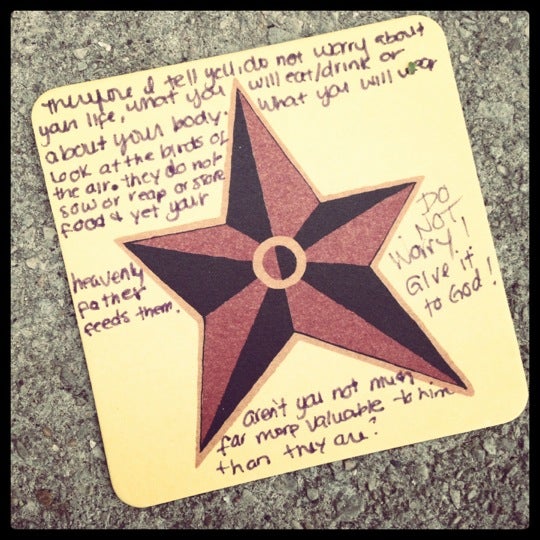 therefore I tell you, do not worry about
your life, what you will eat/drink or
about your body. what you will wear
Look at the birds of
the air. they do not
sow or reap or store
food & yet your
heavenly
father
feeds them.
aren't you not much
far more valuable to him
than they are?
DO
NOT
Worry!
Give it
to God!